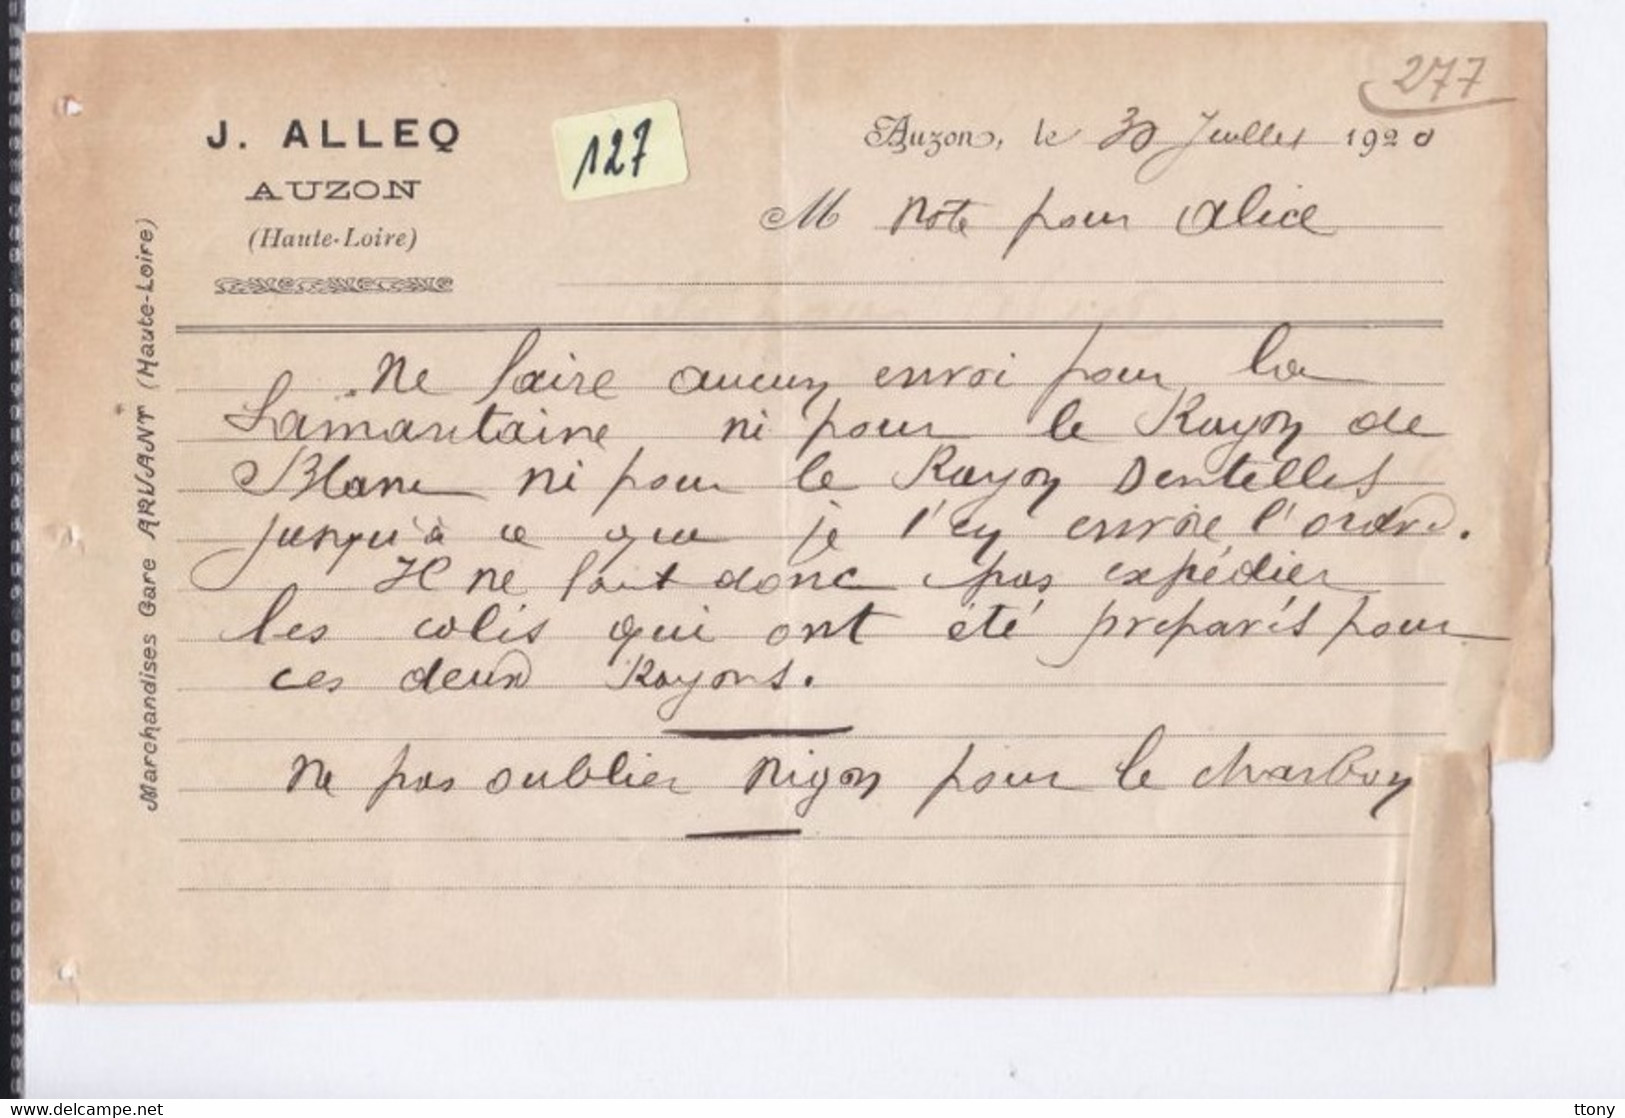 277
J. ALLEQ
AUZON
(Haute-Loire)
127
Auzon, le 30 Juillet 1920
M Note pour Alice
Marchandises Gare ARVANT (Haute-Loire)
Ne faire aucun envoi pour la
Samaritaine ni pour le Rayon de
Blanc ni pour le Rayon Dentelles
jusqu'à ce que je t'en envoie l'ordre.
Il ne faut donc pas expédier
les colis qui ont été préparés pour
ces deux Rayons.
Ne pas oublier Nigon pour le charbon
delcampe.net
ttony